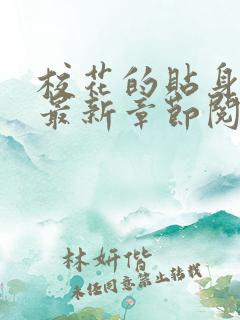 校花的貼身
最新章節閱
林妍偕
未经同意禁止转载